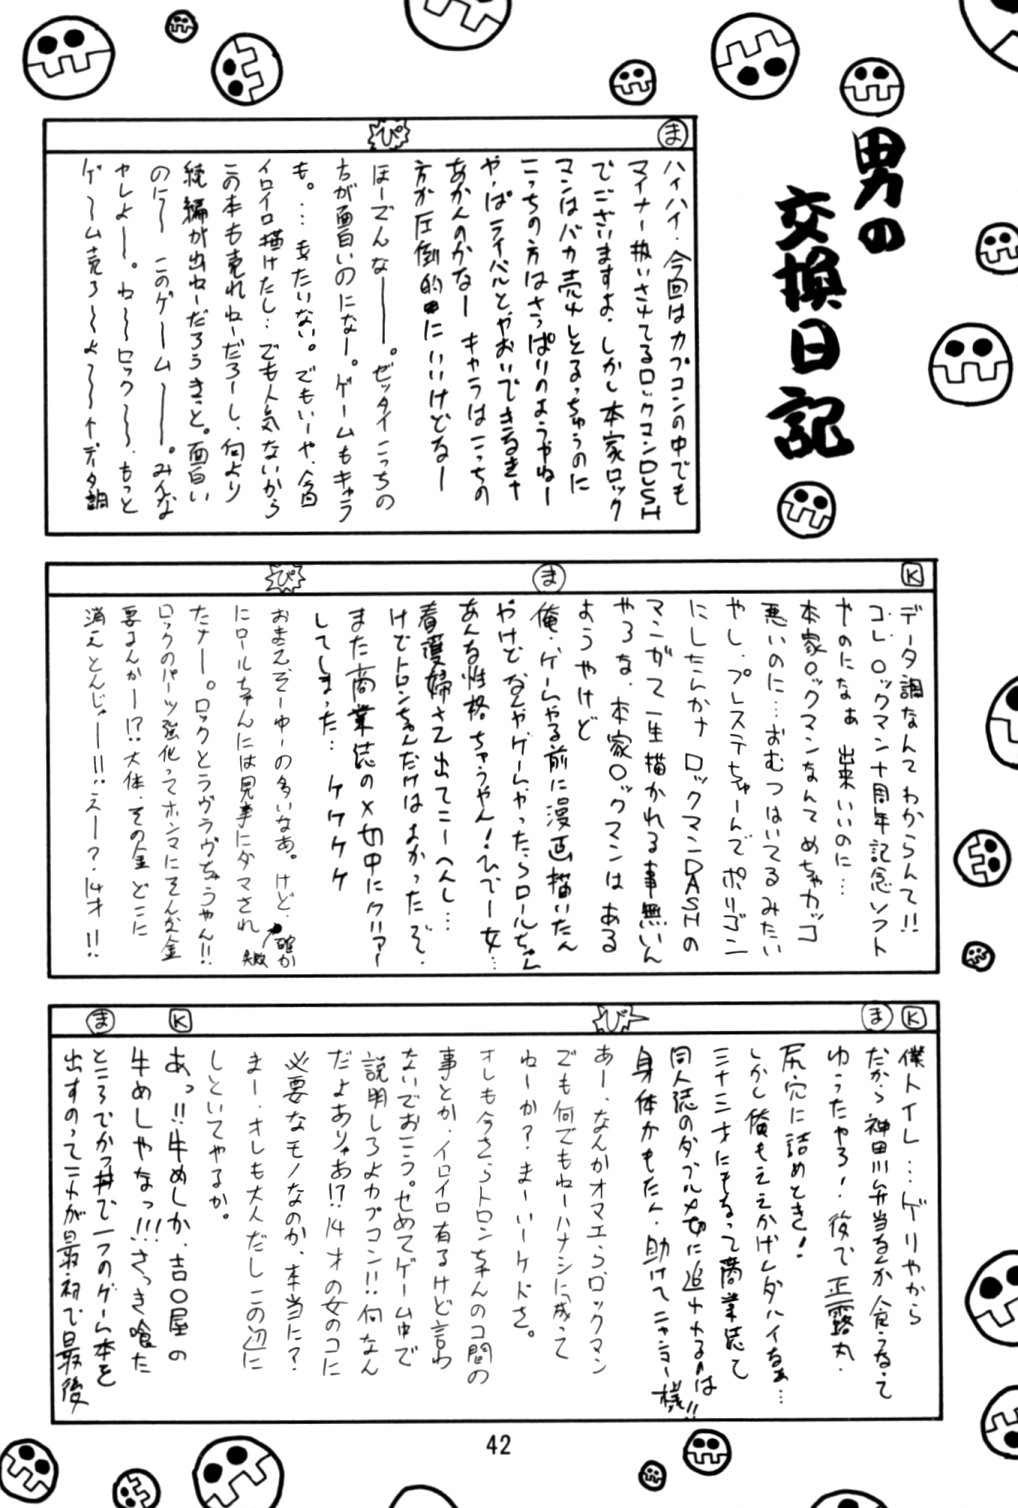 男の
交換日記
ま
ハイハイ、今回はカプコンの中でも
マイナー扱いされてるロックマンDASH
でございますよ。しかし本家ロック
マンはバカ売れしとるっちゅうのに
こっちの方はさっぱりのようやねー
やっぱライバルとやおいできるきャ
あかんのかなー キャラはこっちの
方が圧倒的にいいけどなー
ぴ
ほーでんなー。ゼッタイこっちの
ちが面白いのになー。ゲームもキャラ
も。…もったいない。でもいーや、今回
イロイロ描けたし…でも人気ないから
この本も売れねーだろーし、何より
続編が出ねーだろうきっと。面白い
のに〜 このゲ〜ム〜。みんな
ヤレよ〜。ね〜ロック〜、もっと
ゲ〜ム売ろ〜よ〜〜↑データ調
K
データ調なんてわからんて!!
コレ、ロックマン十周年記念ソフト
やのになぁ 出来いいのに…
本家ロックマンなんてめちゃカッコ
悪いのに…おむつはいてるみたい
やし、プレステちゃーんでポリゴン
にしたんかナ ロックマンDASHの
マンガて一生描かれる事無いん
やろな、本家ロックマンはある
ようやけど
ま
俺、ゲームやる前に漫画描いたん
やけど なんやゲームやったらロールちゃん
あんな性格ちゃうやん!ひでー女…
看護婦さん出てこーへんし…
けどトロンちゃんだけはよかったぞ。
また商業誌の〆切中にクリアー
してしまった… ケケケケ
ぴ
おまえぞーゆーの多いなぁ。けど、確か
にロールちゃんには見事にダマされ
たナー。ロックとラヴラヴちゃうやん!!
ロックのパーツ強化ってホンマにそんな金
要るんかー!?大体、その金どこに
消えとんじゃー!!…えー?14才!!
K
僕トイレ…ゲリやから
ま
だから神田川弁当なんか食うなって
ゆったやろ!後で正露丸、
尻穴に詰めとき!
しかし俺もええかげんダハイなぁ…
三十三才にもなって商業誌て
同人誌のダブル〆切に追われるのは!!
身体がもたん、助けてニャンコー様
ぴ
あー、なんかオマエら、ロックマン
でも何でもねーハナシに成って
ねーか?まーいーケドさ。
オレも今さらトロンちゃんのコ間の
事とか、イロイロ有るけど言わ
ないでおこう。せめてゲーム中で
説明しろよカプコン!!何なん
だよありゃあ!?14才の女のコに
必要なモノなのか、本当に?
まー、オレも大人だしこの辺に
しといてやるか。
K
あっ!!牛めしか、吉〇屋の
牛めしやなっ!!!さっき喰た
ま
ところでかつ丼で一つのゲーム本を
出すのってこれが最初で最後
42